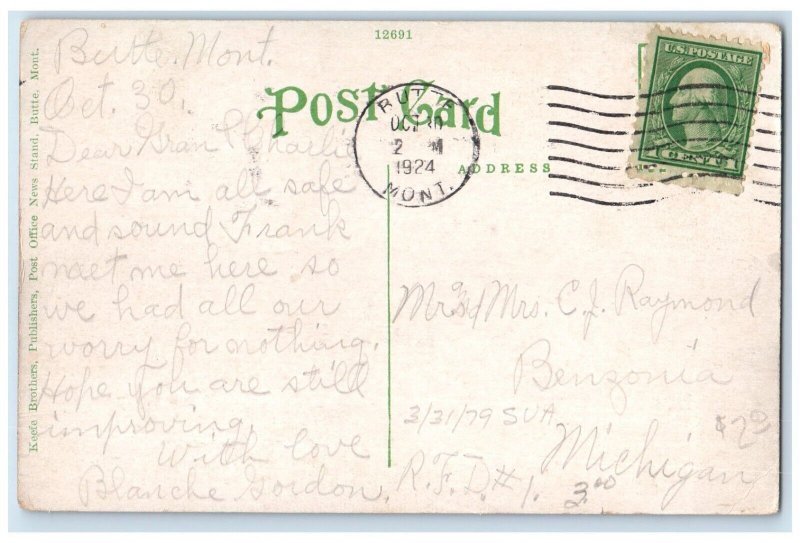 12691
Post Card
ADDRESS
Keefe Brothers, Publishers, Post Office News Stand, Butte, Mont.
U.S. POSTAGE
CENT
BUTTE
OCT 30
2 M
1924
MONT.
Butte. Mont.
Oct. 30.
Dear Gran & Charlie
Here I am all safe
and sound Frank
maet me here so
we had all our
worry for nothing.
Hope you are still
improving.
With love
Blanche Gordon.
Mr. & Mrs. C. J. Raymond
Benzonia
Michigan
R.F.D. # 1.
3/31/79 SVA
3.00